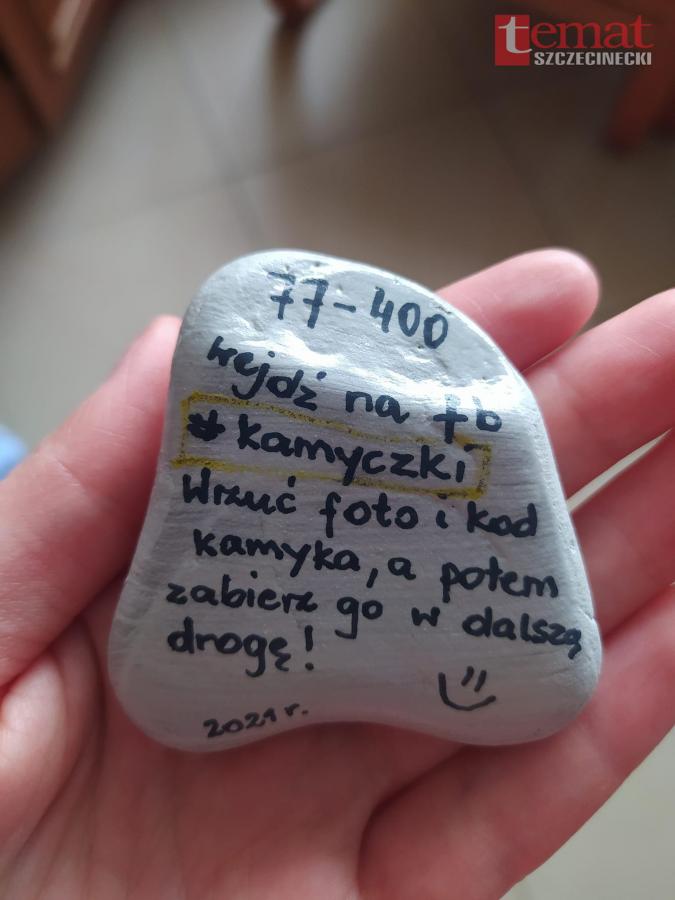 temat
SZCZECINECKI
77-400
wejdź na fb
#kamyczki
Wrzuć foto i kod
kamyka, a potem
zabierz go w dalszą
drogę!
2021 r.